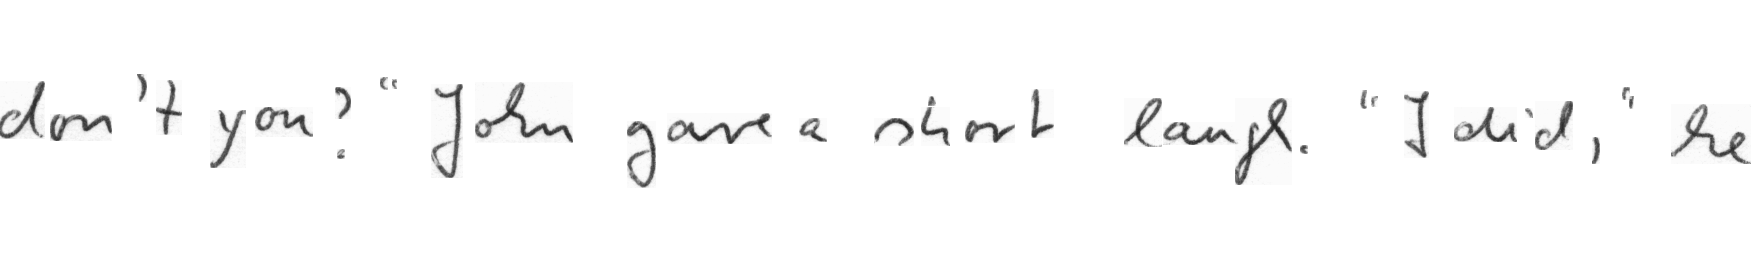 don't you?" John gave a short laugh. "I did," he